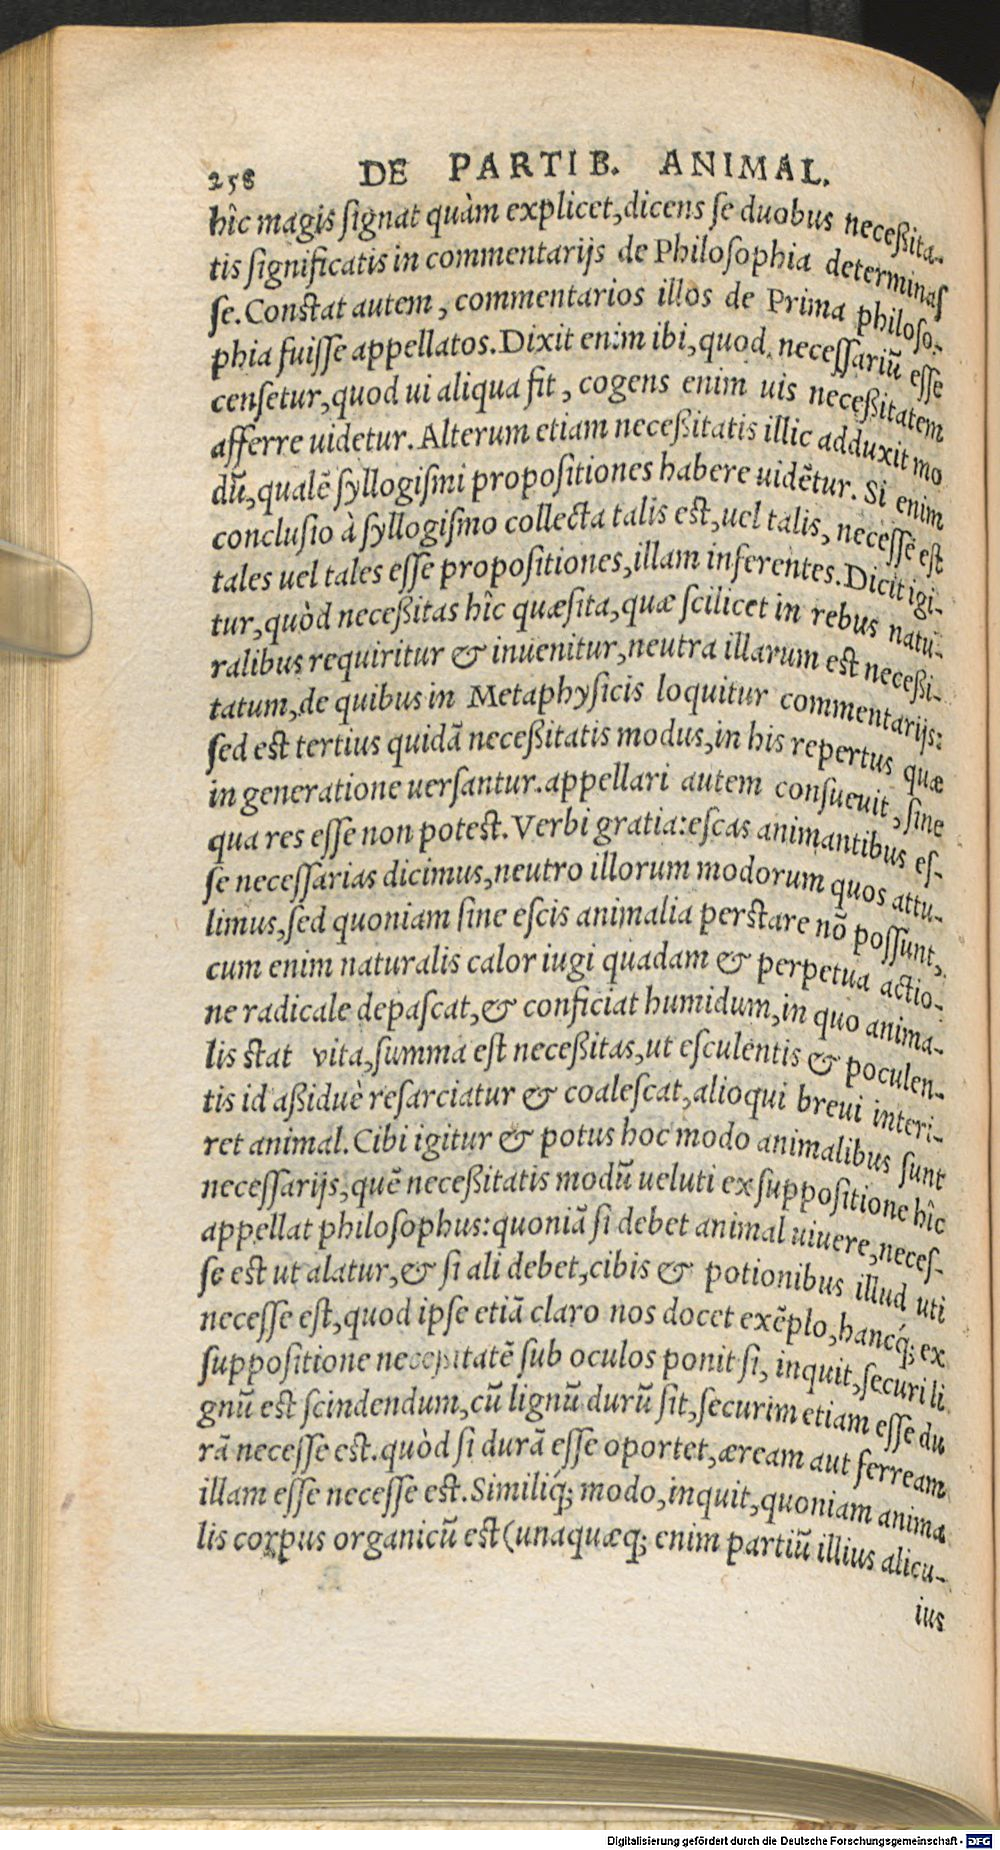 258 DE PARTIB. ANIMAL.
hîc magis ſignat quàm explicet,dicens ſe duobus neceßita-
tis ſignificatis in commentarijs de Philoſophia determinaſ
ſe. Conſtat autem, commentarios illos de Prima philoſo-
phia fuiſſe appellatos. Dixit enim ibi,quod neceſſariũ eſſe
cenſetur,quod ui aliqua fit, cogens enim uis neceßitatem
afferre uidetur. Alterum etiam neceßitatis illic adduxit mo
dũ,qualẽ ſyllogiſmi propoſitiones habere uidẽtur. Si enim
concluſio à ſyllogiſmo collecta talis eſt,uel talis, neceſſe eſt
tales uel tales eſſe propoſitiones,illam inferentes. Dicit igi-
tur,quòd neceßitas hîc quæſita,quæ ſcilicet in rebus natu-
ralibus requiritur & inuenitur,neutra illarum eſt neceßi-
tatum,de quibus in Metaphyſicis loquitur commentarijs:
ſed eſt tertius quidã neceßitatis modus,in his repertus quæ
in generatione uerſantur.appellari autem conſueuit, ſine
qua res eſſe non poteſt. Verbi gratia:eſcas animantibus eſ-
ſe neceſſarias dicimus,neutro illorum modorum quos attu-
limus,ſed quoniam ſine eſcis animalia perſtare nõ poſſunt,
cum enim naturalis calor iugi quadam & perpetua actio-
ne radicale depaſcat,& conficiat humidum,in quo anima-
lis ſtat vita,ſumma eſt neceßitas,ut eſculentis & poculen-
tis id aßiduè reſarciatur & coaleſcat,alioqui breui interi-
ret animal. Cibi igitur & potus hoc modo animalibus ſunt
neceſſarijs,quẽ neceßitatis modũ ueluti ex ſuppoſitione hîc
appellat philoſophus:quoniã ſi debet animal uiuere,neceſ-
ſe eſt ut alatur,& ſi ali debet,cibis & potionibus illud uti
neceſſe eſt,quod ipſe etiã claro nos docet exẽplo,hancq́; ex
ſuppoſitione neceßitatẽ ſub oculos ponit ſi, inquit,ſecuri li
gnũ eſt ſcindendum,cũ lignũ durũ ſit,ſecurim etiam eſſe du
rã neceſſe eſt.quòd ſi durã eſſe oportet,æream aut ferream
illam eſſe neceſſe eſt. Similiq́; modo,inquit,quoniam anima
lis corpus organicũ eſt (unaquæq; enim partiũ illius alicu-
ius
Digitalisierung gefördert durch die Deutsche Forschungsgemeinschaft - DFG